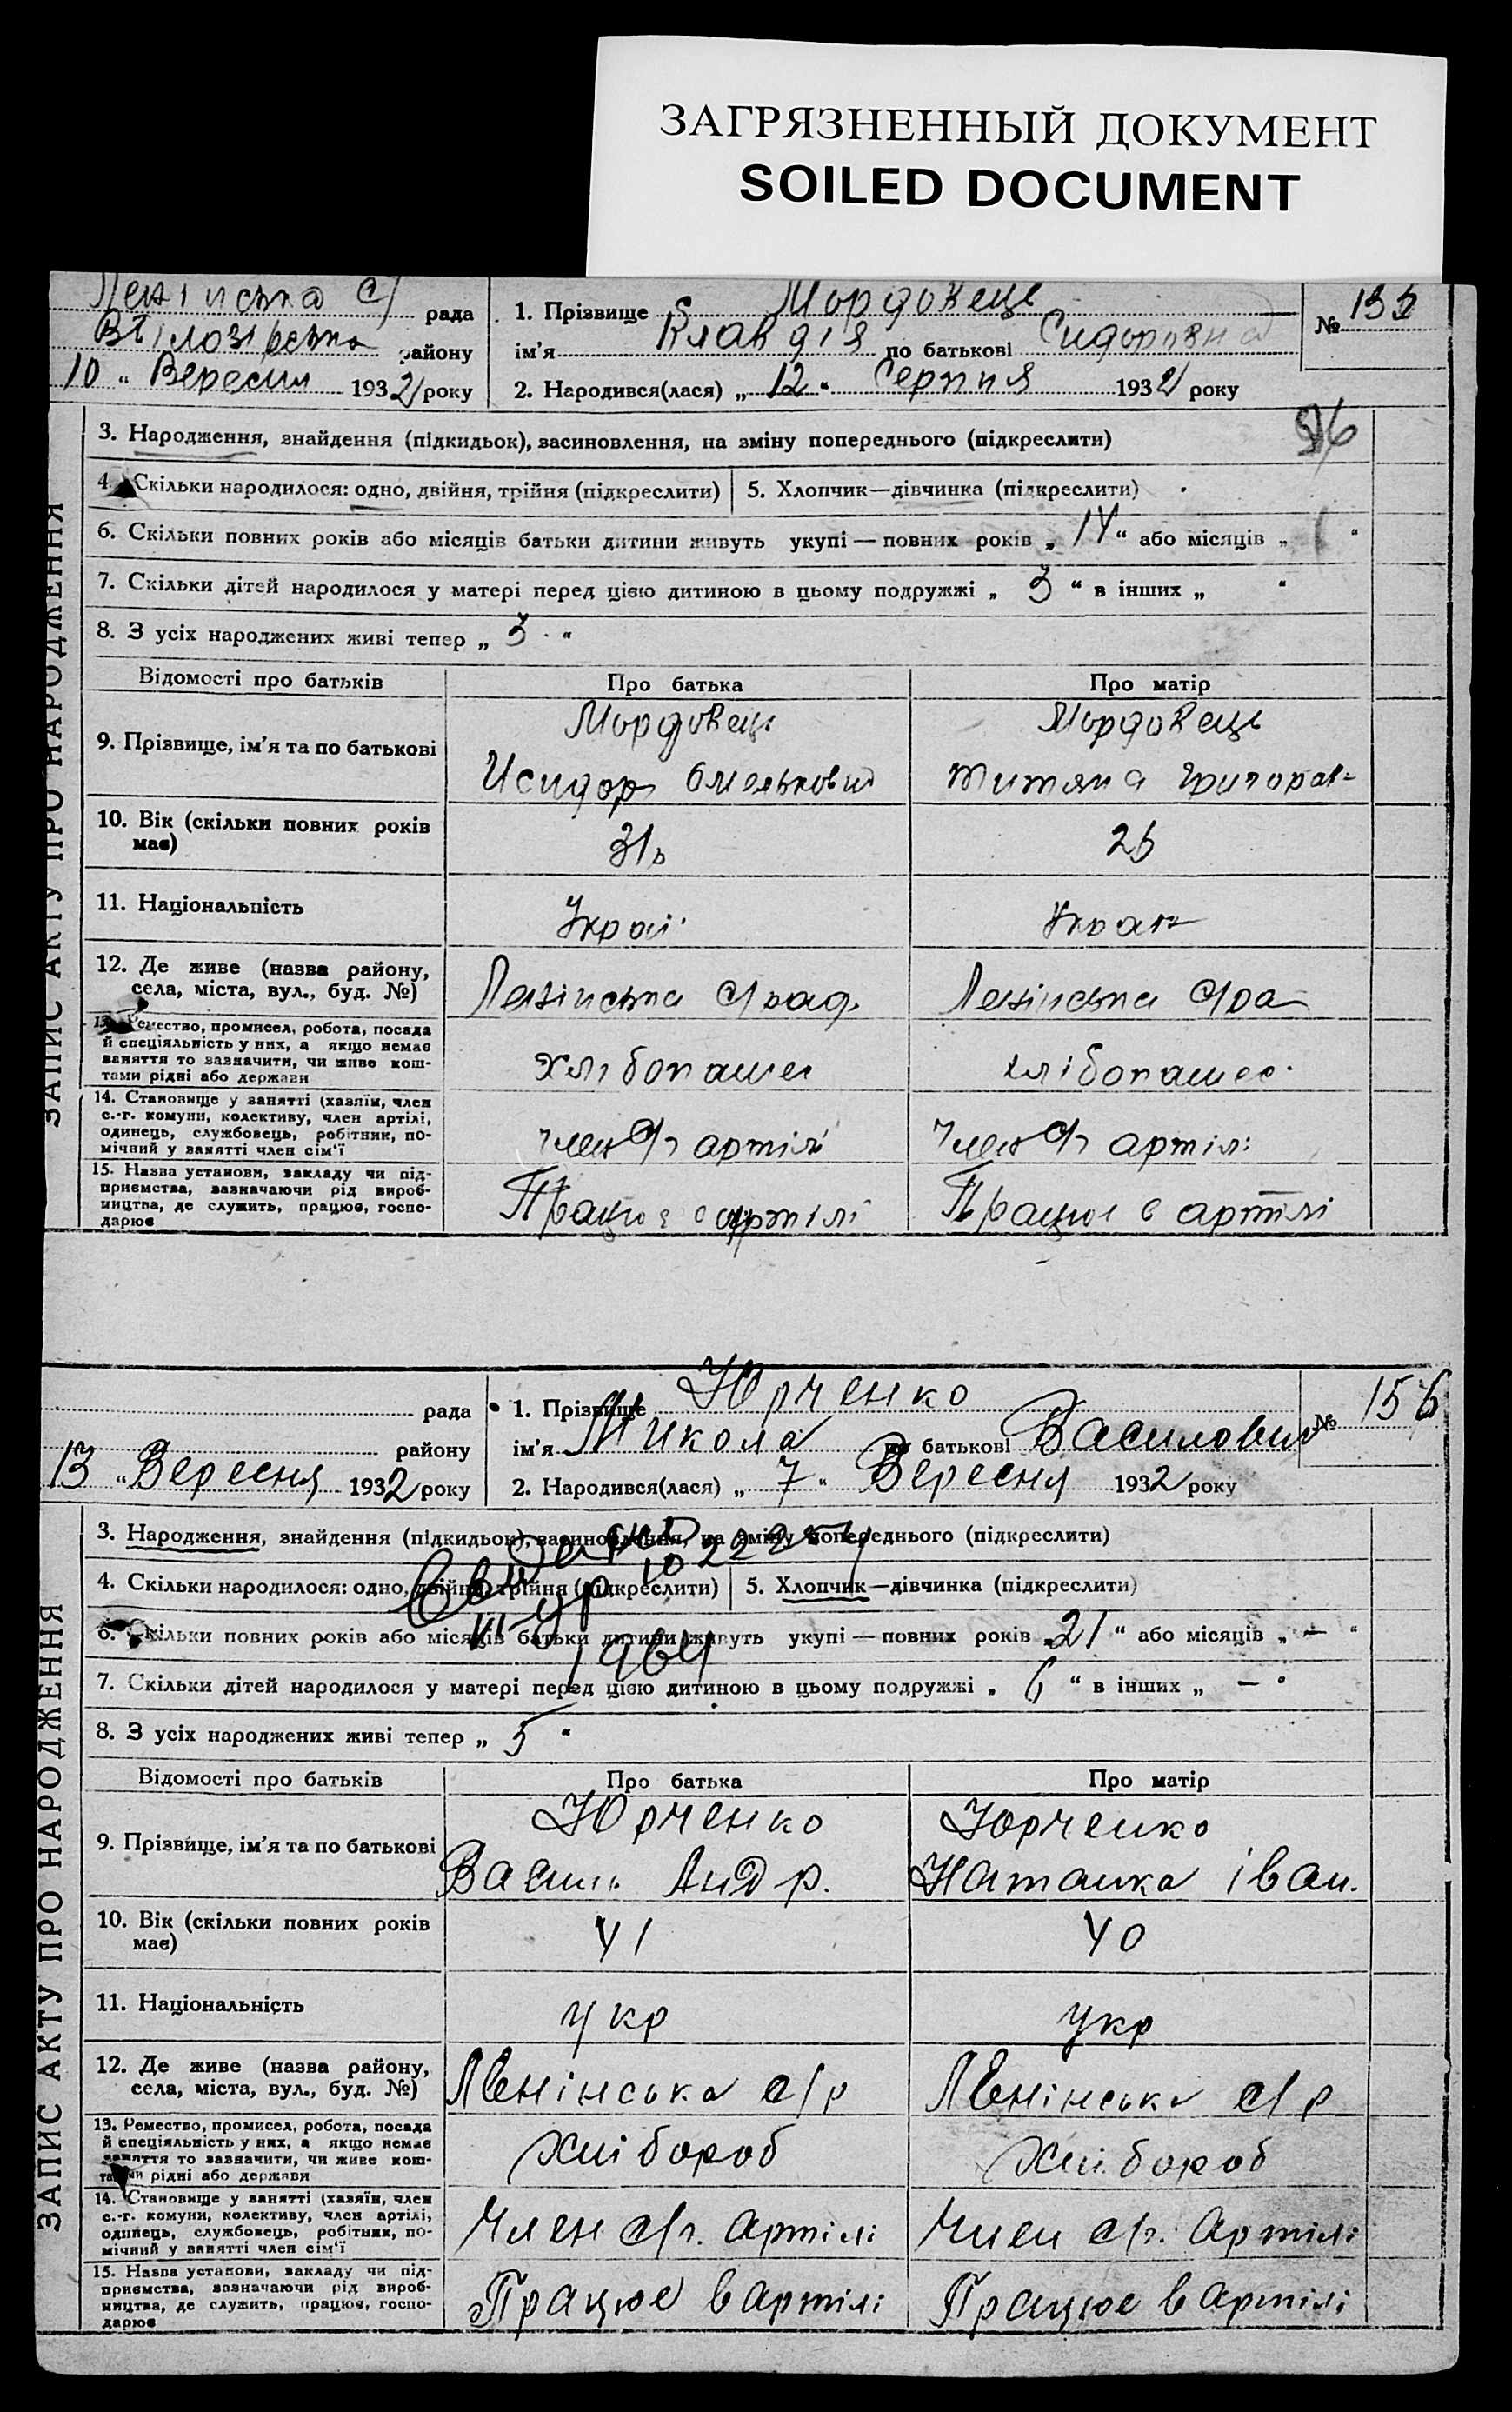 ЗАГРЯЗНЕННЫЙ ДОКУМЕНТ
SOILED DOCUMENT
Ленінська с/ рада
району
10 „ Вересня 1932 року
1. Прізвище Мордовець
ім'я Клавдія по батькові Сидоровна
№
2. Народився(лася) „ 12 “ Серпня 1932 року
ЗАПИС АКТУ ПРО НАРОДЖЕННЯ
3. Народження, знайдення (підкидьок), засиновлення, на зміну попереднього (підкреслити)
4. Скільки народилося: одно, двійня, трійня (підкреслити) 5. Хлопчик—дівчинка (підкреслити)
6. Скільки повних років або місяців батьки дитини живуть укупі — повних років „ 14 “ або місяців „ “
7. Скільки дітей народилося у матері перед цією дитиною в цьому подружжі „ 3 “ в інших „ “
8. З усіх народжених живі тепер „ 3 “
Відомості про батьків Про батька Про матір
9. Прізвище, ім'я та по батькові
Мордовець Мордовець
Исидор Омелькович
10. Вік (скільки повних років
має)
11. Національність
12. Де живе (назва району,
села, міста, вул., буд. №)
Ленінська с/рад. Ленінська с/ра
13. Ремество, промисел, робота, посада
й спеціяльність у них, а якщо немає
заняття то зазначити, чи живе кош-
тами рідні або держави
хлібопашес хлібопашес
14. Становище у занятті (хазяїн, член
с.-г. комуни, колективу, член артілі,
одинець, службовець, робітник, по-
мічний у занятті член сім'ї
член с/г артілі член с/г артілі
15. Назва установи, закладу чи під-
приємства, зазначаючи рід вироб-
ництва, де служить, працює, госпо-
дарює
Працює в артілі Працює в артілі
рада
району
13 „ Вересня 1932 року
1. Прізвище Юрченко
ім'я Микола по батькові Василович
№ 156
2. Народився(лася) „ 7 “ Вересня 1932 року
ЗАПИС АКТУ ПРО НАРОДЖЕННЯ
3. Народження, знайдення (підкидьок), засиновлення, на зміну попереднього (підкреслити)
4. Скільки народилося: одно, двійня, трійня (підкреслити) 5. Хлопчик—дівчинка (підкреслити)
1964
6. Скільки повних років або місяців батьки дитини живуть укупі — повних років „ 21 “ або місяців „ — “
7. Скільки дітей народилося у матері перед цією дитиною в цьому подружжі „ 6 “ в інших „ — “
8. З усіх народжених живі тепер „ 5 “
Відомості про батьків Про батька Про матір
9. Прізвище, ім'я та по батькові
Юрченко Юрченко
Василь Андр. Наталка Іван.
10. Вік (скільки повних років
має)
41 40
11. Національність
укр укр
12. Де живе (назва району,
села, міста, вул., буд. №)
Ленінська с/р Ленінська с/р
13. Ремество, промисел, робота, посада
й спеціяльність у них, а якщо немає
заняття то зазначити, чи живе кош-
тами рідні або держави
хлібороб хлібороб
14. Становище у занятті (хазяїн, член
с.-г. комуни, колективу, член артілі,
одинець, службовець, робітник, по-
мічний у занятті член сім'ї
Член с/г. артілі Член с/г. артілі
15. Назва установи, закладу чи під-
приємства, зазначаючи рід вироб-
ництва, де служить, працює, госпо-
дарює
Працює в артілі Працює в артілі